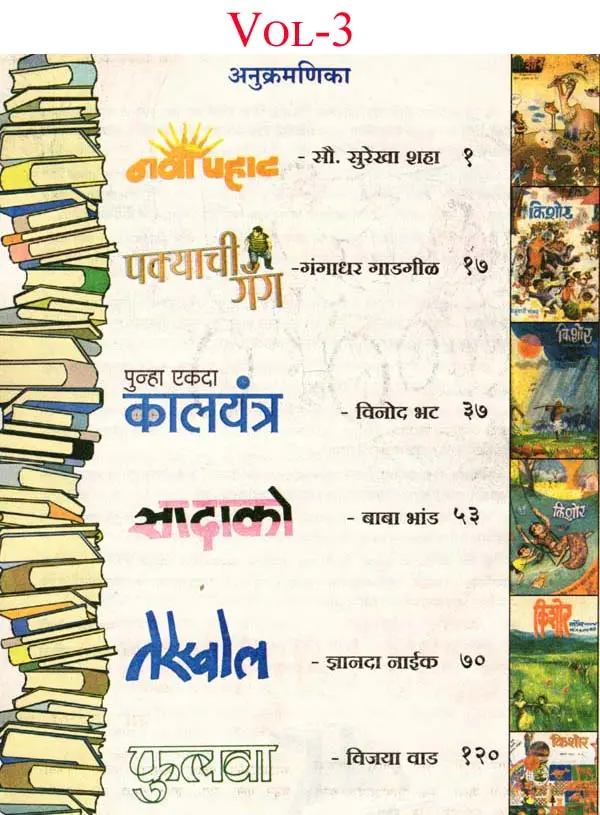 VOL-3
अनुक्रमणिका
नवी पहाट - सौ. सुरेखा शहा १
पक्याची गँग -गंगाधर गाडगीळ १७
पुन्हा एकदा
कालयंत्र - विनोद भट ३७
सादाको - बाबा भांड ५३
- ज्ञानदा नाईक ७०
फुलवा - विजया वाड १२०
किशोर
किशोर
किशोर
किशोर
किशोर
किशोर